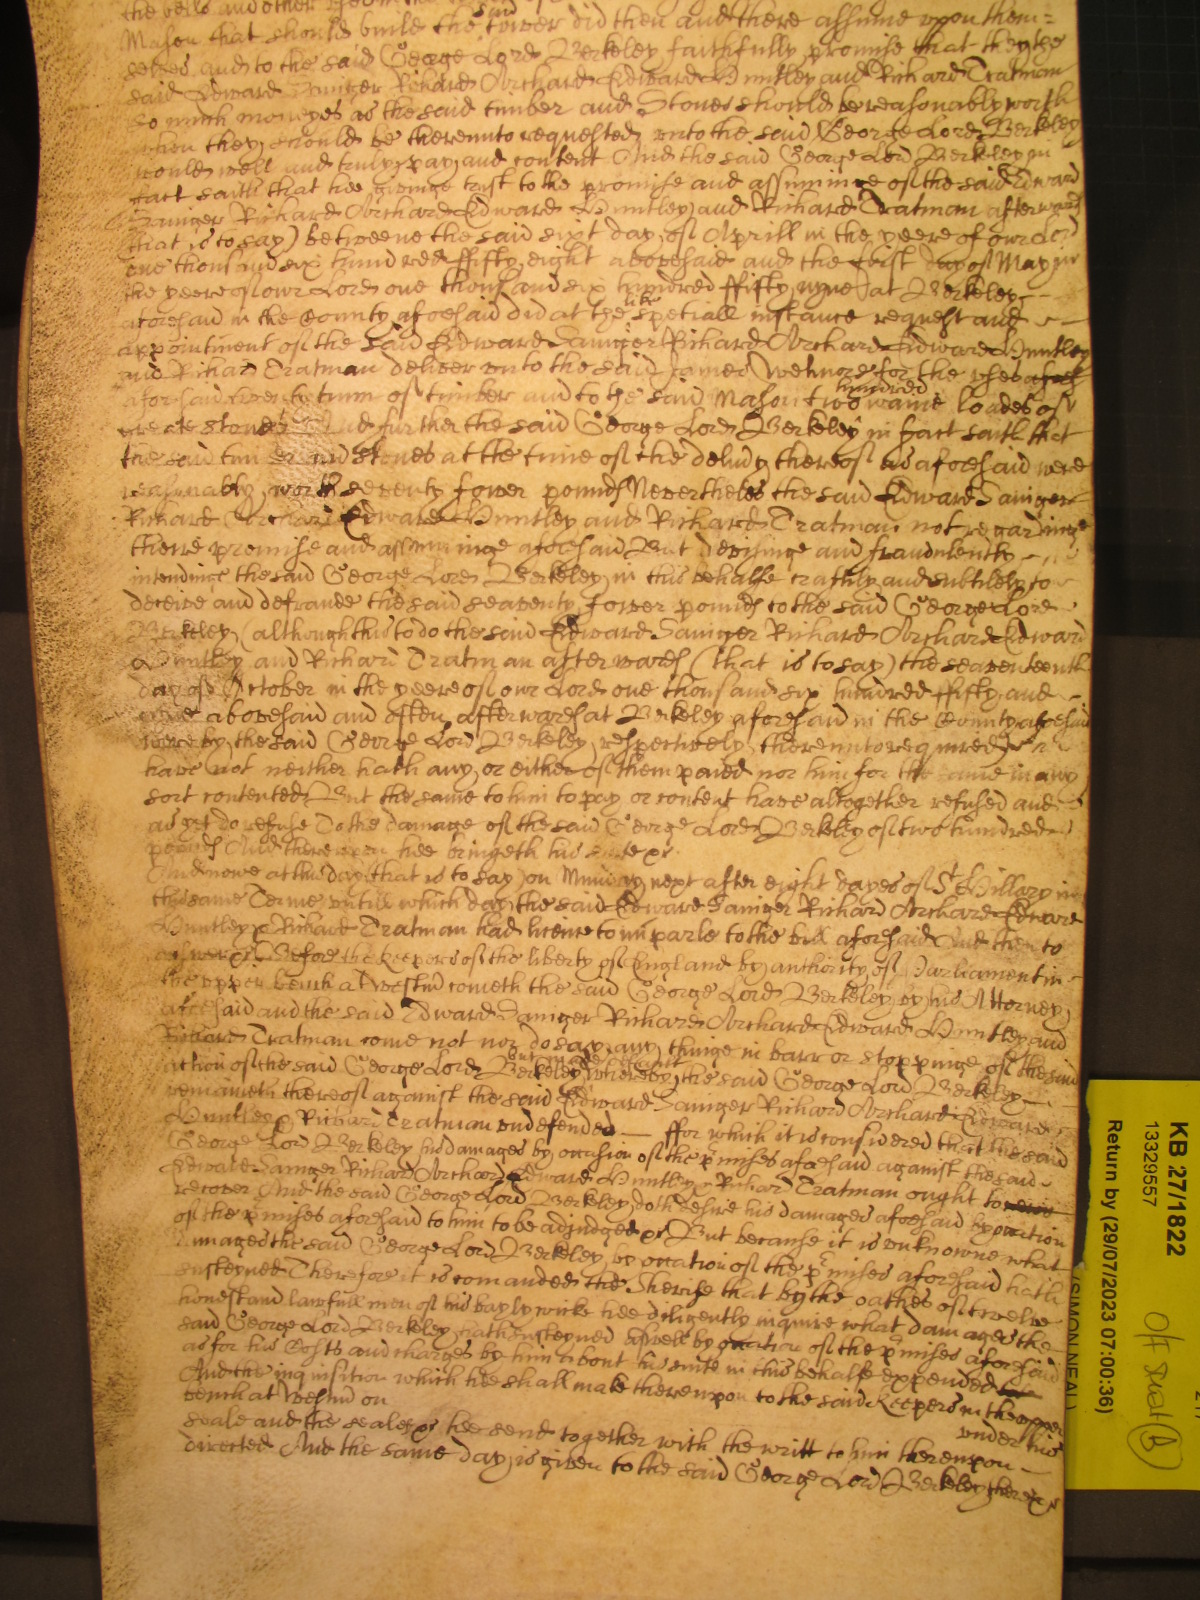 the bells and other
Mason that should build the said tower did then and there assume upon them=
selves and to the said George Lord Berkeley faithfully promise that they the
said Edward Saniger Richard Orchard Edward Huntley and Richard Tratman
so much moneyes as the said timber and Stones should be reasonably worth
when they should be thereunto requested unto the said George Lord Berkeley
would well and truly pay and content And the said George Lord Berkeley in
fact saith that hee giveinge trust to the promise and assuminge of the said Edward
Saniger Richard Orchard Edward Huntley and Richard Tratman afterwards
(that is to say) betweene the said sixt day of Aprill in the yeere of our Lord
one thousand six hundred ffifty eight abovesaid and the first day of May in
the yeere of our Lord one thousand six hundred ffifty nyne at Berkeley
aforesaid in the County aforesaid did at the like speciall instance request and
appointment of the said Edward Saniger Richard Orchard Edward Huntley
and Richard Tratman deliver unto the said James Wetmore for the use
aforesaid twenty tunn of timber and to the said Mason two hundred waine loades of
greate stones And further the said George Lord Berkeley in fact saith that
the said timber and stones at the time of the delivy thereof as aforesaid were
reasonably worth seventy fower pounds Neverthelesse the said Edward Saniger
Richard Orchard Edward Huntley and Richard Tratman not regardinge
theire promise and assuminge aforesaid But devisinge and fraudulently
intendinge the said George Lord Berkeley in this behalfe craftily and subtilely to
deceive and defraude the said seaventy fower pounds to the said George Lord
Berkeley (although this to do the said Edward Saniger Richard Orchard Edward
Huntley and Richard Tratman afterwards (that is to say) the seaventeenth
day of October in the yeere of our Lord one thousand six hundred ffifty and
nine abovesaid and often afterwards at Berkeley aforesaid in the County aforesaid
were by the said George Lord Berkeley respectively thereunto required)
have not neither hath any or either of them payed nor him for the same in any
sort contented But the same to him to pay or content have altogether refused and
as yet do refuse To the damage of the said George Lord Berkeley of two hundred
pounds And thereupon hee bringeth his suite &c.
And nowe at this day (that is to say) on Munday next after eight dayes of St Hillary in
this same Terme untill which day the said Edward Saniger Richard Orchard Edward
Huntley & Richard Tratman had licence to imparle to the bill aforesaid And then to
answer &c. Before the keepers of the liberty of England by authority of Parliament in
the upper bench at Westm̄ cometh the said George Lord Berkeley by his Attorney
aforesaid and the said Edward Saniger Richard Orchard Edward Huntley and
Richard Tratman come not nor do say any thinge in barr or stoppinge of the said
action of the said George Lord Berkeley but make default whereby the said George Lord Berkeley
remaineth thereof against the said Edward Saniger Richard Orchard Edward
Huntley & Richard Tratman undefended ffor which it is considered that the said
George Lord Berkeley his damages by occasion of the p̄misses aforesaid against the said
Edward Saniger Richard Orchard Edward Huntley & Richard Tratman ought to
recover And the said George Lord Berkeley doth desire his damages aforesaid by occation
of the p̄misses aforesaid to him to be adjudged &c. But because it is unknowne what
damages the said George Lord Berkeley by occation of the p̄misses aforesaid hath
susteyned Therefore it is comanded the Sherife that by the oathes of twelve
honest and lawfull men of his baylywicke hee diligently inquire what damages the
said George Lord Berkeley hath susteyned aswell by occation of the p̄misses aforesaid
as for his Costs and charges by him about his suite in this behalfe expended
And the inquisition which hee shall make thereupon to the said Keepers in the upper
bench at Westm̄ on under his
seale and the seales &c. hee send together with the writt to him thereupon
directed And the same day is given to the said George Lord Berkeley there &c.
KB 27/1822
13329557
(SIMON NEAL)
Return by (29/07/2023 07:00:36)